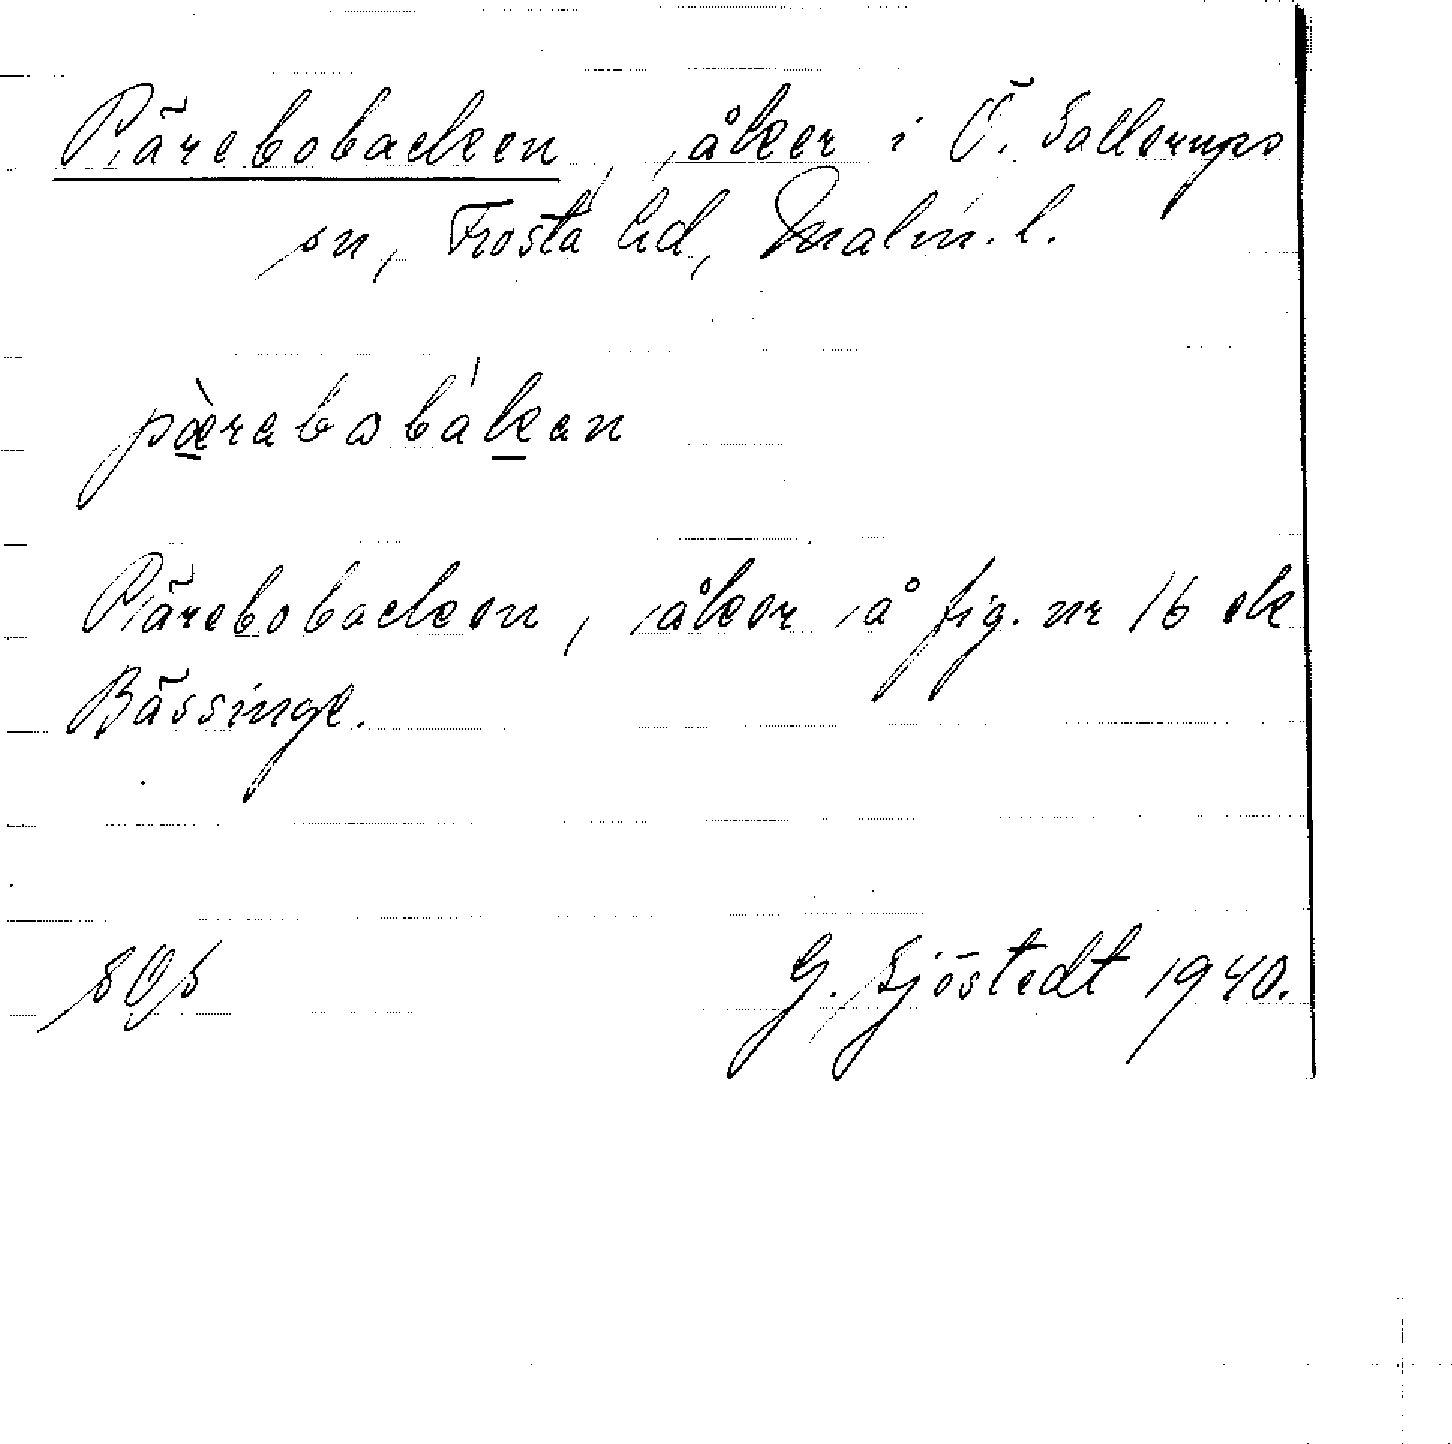 Pärebobacken, åker i Ö. Sallerups
sn, Frosta hd, Malm. l.
pæ̀rabobákan
Pärebobacken, åker å fig. nr 16 ek
Bässinge.
SOS G. Sjöstedt 1940.